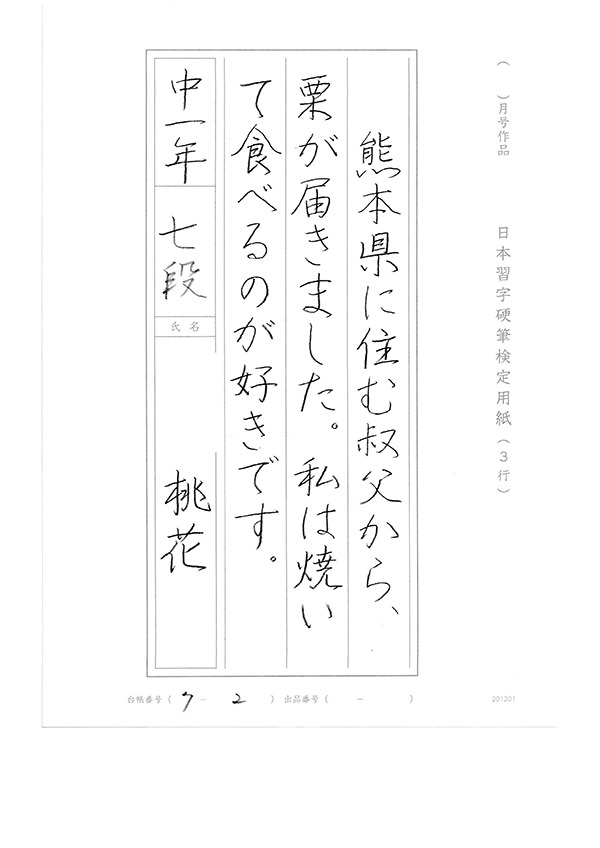 （　　）月号作品　日本習字硬筆検定用紙（３行）
熊本県に住む叔父から、
栗が届きました。私は焼い
て食べるのが好きです。
中一年　七段　氏名　桃花
台帳番号（ ク － 2 ）　出品番号（　－　）
201201